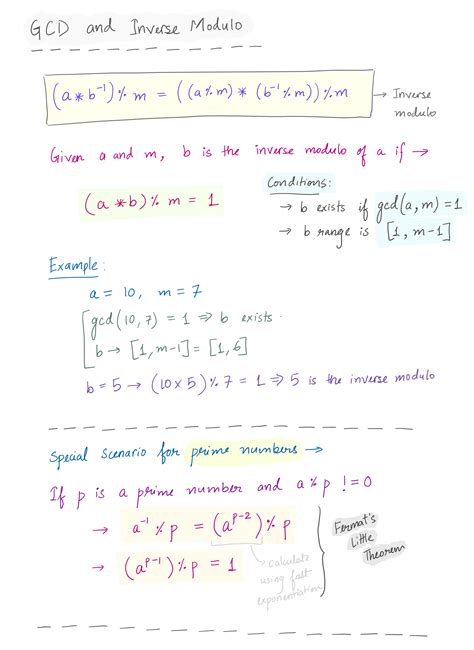 GCD and Inverse Modulo
(a * b⁻¹) % m = ((a % m) * (b⁻¹ % m)) % m → Inverse modulo
Given a and m, b is the inverse modulo of a if →
(a * b) % m = 1
Conditions:
→ b exists if gcd(a, m) = 1
→ b range is [1, m-1]
Example:
a = 10, m = 7
gcd(10, 7) = 1 ⇒ b exists.
b → [1, m-1] = [1, 6]
b = 5 → (10 x 5) % 7 = 1 ⇒ 5 is the inverse modulo
Special scenario for prime numbers →
If p is a prime number and a % p != 0
→ a⁻¹ % p = (a^(p-2)) % p
→ (a^(p-1)) % p = 1
→ calculate
using fast
exponentiation
Fermat's
Little
Theorem